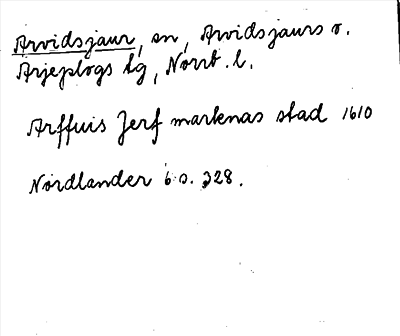 Arvidsjaur, sn, Arvidsjaurs o.
Arjeplogs tg, Norrb. l.
Arffuis Jerf marknas stad 1610
Nordlander 6 s. 328.